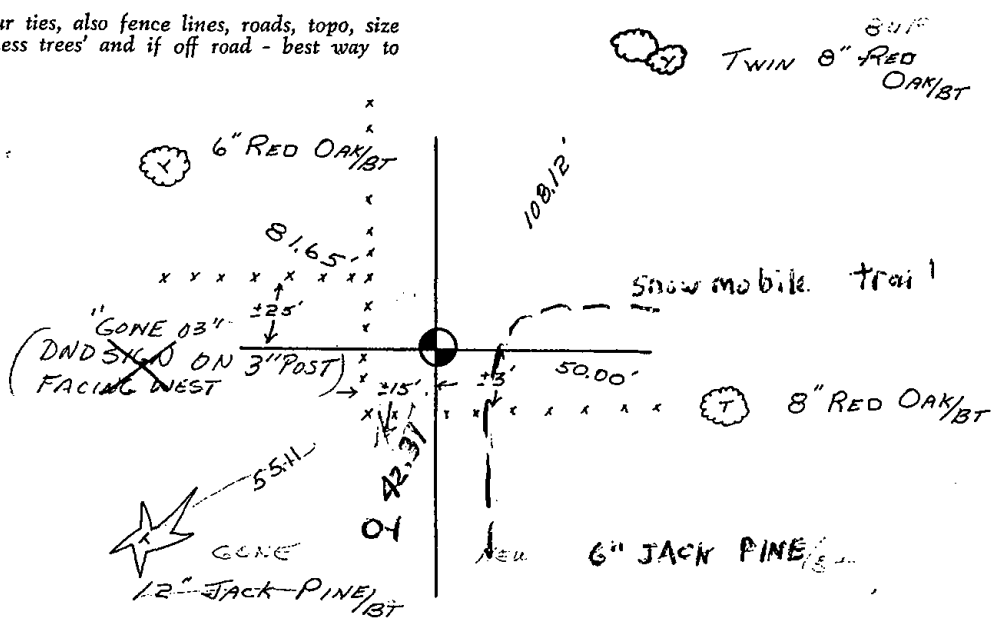 ur ties, also fence lines, roads, topo, size
ness trees' and if off road - best way to
TWIN 8" RED
OAK/BT
6" RED OAK/BT
108.12'
81.65'
snowmobile trail
±25'
"GONE 03"
(DND SIGN ON 3" POST)
FACING WEST
±15'
±3'
50.00'
8" RED OAK/BT
55.11
42.37
04
GONE
12" JACK PINE/BT
NEW
6" JACK PINE